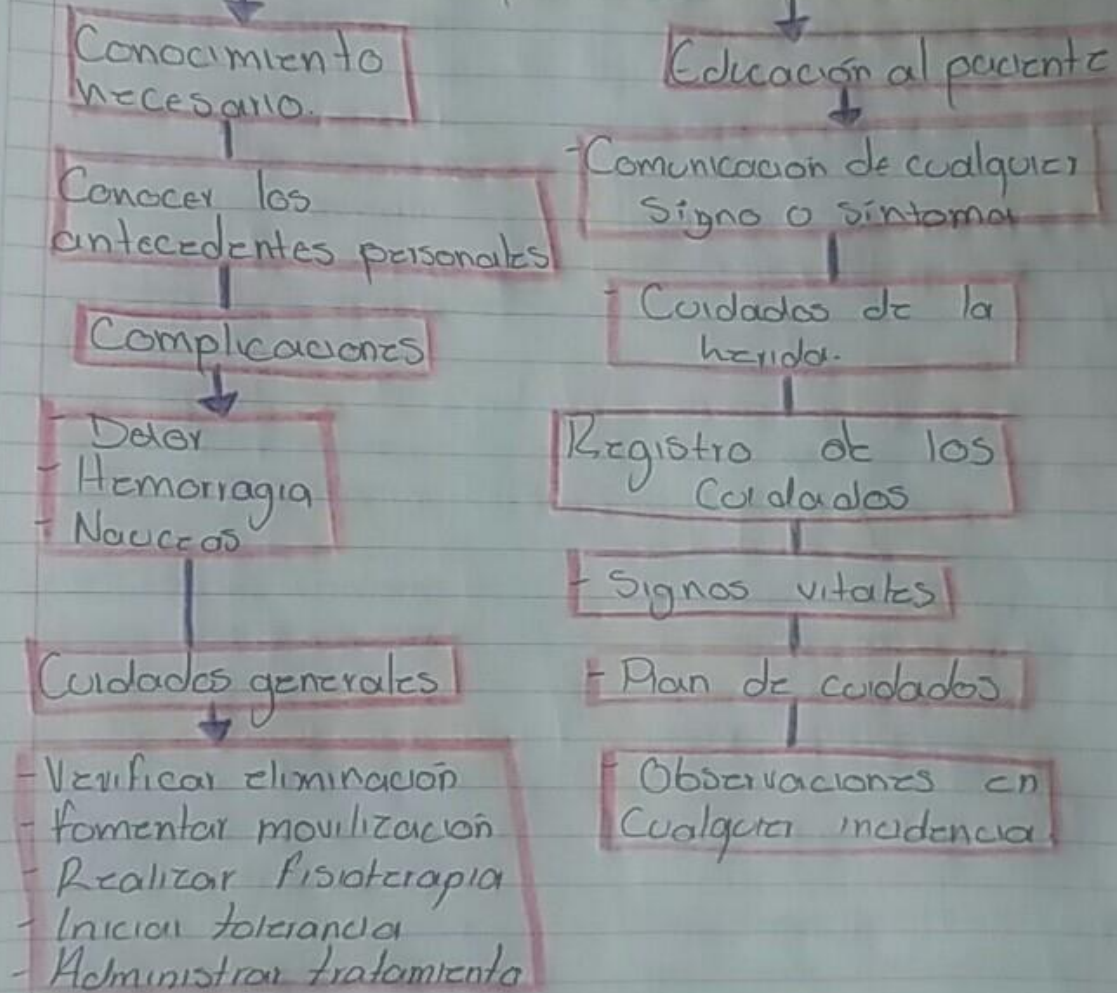 Conocimiento
necesario.
Conocer los
antecedentes personales
Complicaciones
- Dolor
- Hemorragia
- Nauceas
Cuidados generales
- Verificar eliminación
- fomentar movilización
- Realizar fisioterapia
- Iniciar tolerancia
- Administrar tratamiento
Educación al paciente
- Comunicación de cualquier
signo o síntoma
- Cuidados de la
herida.
Registro de los
Cuidados
- Signos vitales
- Plan de cuidados
- Observaciones en
Cualquier incidencia